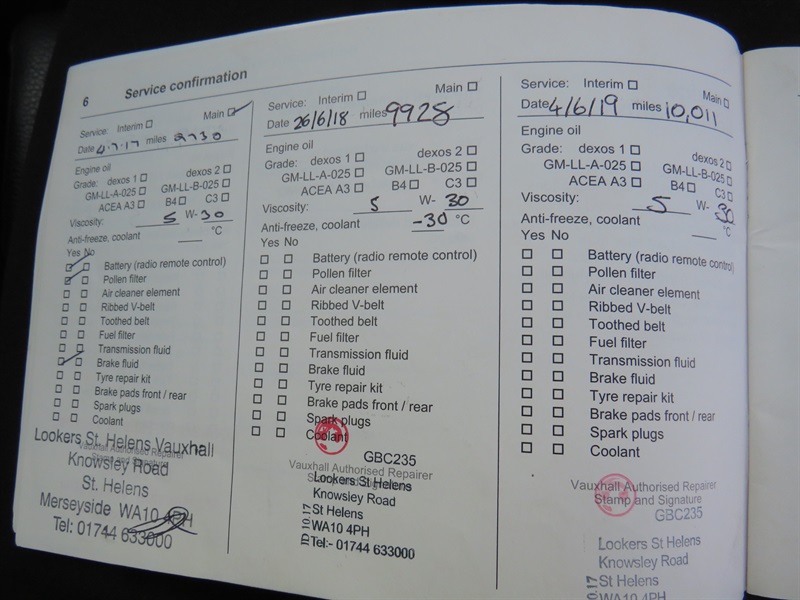 6 Service confirmation
Service: Interim ☐ Main ☑
Date 4.7.17 miles 2730
Engine oil
Grade: dexos 1 ☐ dexos 2 ☐
GM-LL-A-025 ☐ GM-LL-B-025 ☐
ACEA A3 ☐ B4 ☐ C3 ☐
Viscosity: 5 W- 30
Anti-freeze, coolant ___ °C
Yes No
Battery (radio remote control)
Pollen filter
Air cleaner element
Ribbed V-belt
Toothed belt
Fuel filter
Transmission fluid
Brake fluid
Tyre repair kit
Brake pads front / rear
Spark plugs
Coolant
Vauxhall Authorised Repairer
Stamp and Signature
Lookers St. Helens Vauxhall
Knowsley Road
St. Helens
Merseyside WA10 4PH
Tel: 01744 633000
Service: Interim ☐ Main ☐
Date 26/6/18 miles 9928
Engine oil
Grade: dexos 1 ☐ dexos 2 ☐
GM-LL-A-025 ☐ GM-LL-B-025 ☐
ACEA A3 ☐ B4 ☐ C3 ☐
Viscosity: 5 W- 30
Anti-freeze, coolant -30 °C
Yes No
Battery (radio remote control)
Pollen filter
Air cleaner element
Ribbed V-belt
Toothed belt
Fuel filter
Transmission fluid
Brake fluid
Tyre repair kit
Brake pads front / rear
Spark plugs
Coolant
GBC235
Vauxhall Authorised Repairer
Stamp and Signature
Lookers St Helens
Knowsley Road
St Helens
WA10 4PH
Tel:- 01744 633000
ID 10.17
Service: Interim ☐ Main ☐
Date 4/6/19 miles 10,011
Engine oil
Grade: dexos 1 ☐ dexos 2 ☐
GM-LL-A-025 ☐ GM-LL-B-025 ☐
ACEA A3 ☐ B4 ☐ C3 ☐
Viscosity: 5 W- 30
Anti-freeze, coolant ___ °C
Yes No
Battery (radio remote control)
Pollen filter
Air cleaner element
Ribbed V-belt
Toothed belt
Fuel filter
Transmission fluid
Brake fluid
Tyre repair kit
Brake pads front / rear
Spark plugs
Coolant
Vauxhall Authorised Repairer
Stamp and Signature
GBC235
Lookers St Helens
Knowsley Road
St Helens
WA10 4PH